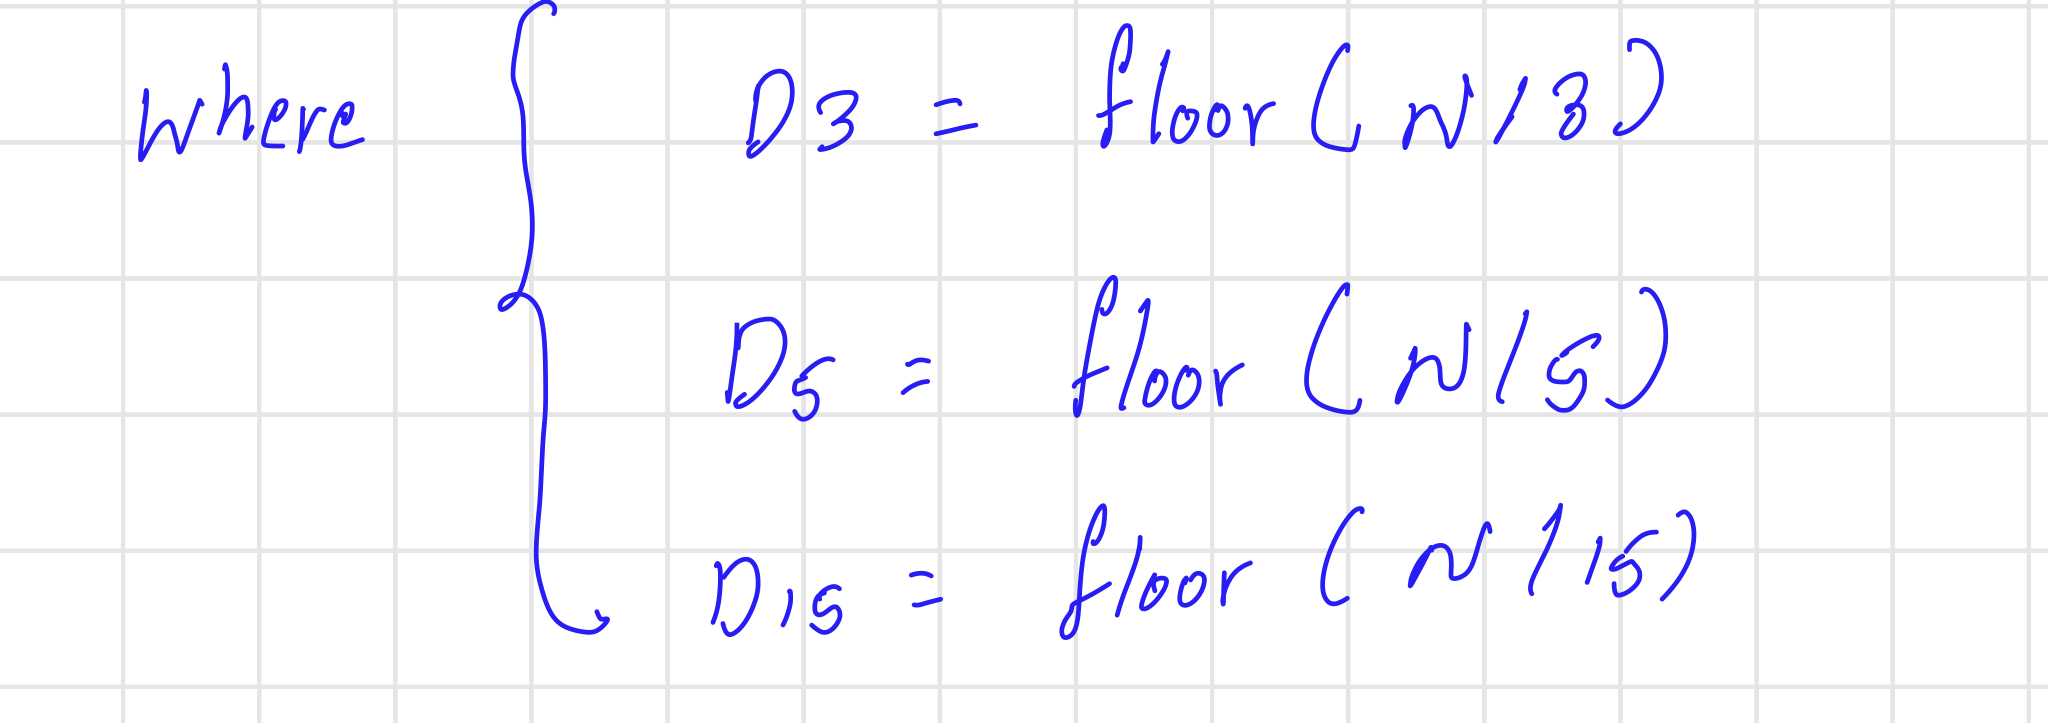 where { D3 = floor(N/3)
D5 = floor(N/5)
D15 = floor(N/15)